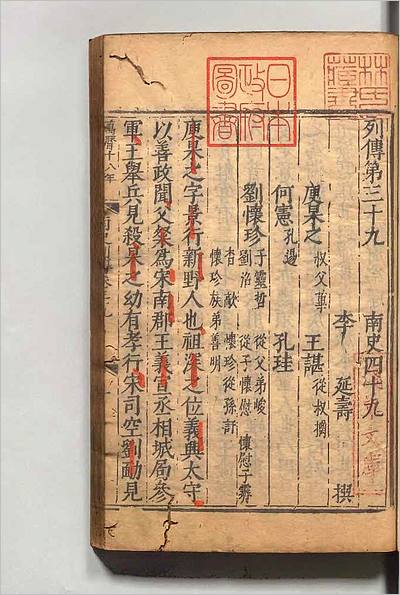 列傳第三十九
南史四十九
李延壽 撰
庾杲之 叔父蓽
王諶 從叔摛
何憲
孔逷
孔珪
劉懷珍 子靈哲 從父弟峻
劉沼 從子懷慰 懷慰子霽
杳 歊 懷珍從孫訏
懷珍族弟善明
庾杲之字景行新野人也祖深之位義興太守
以善政聞父粲為宋南郡王義宣丞相城局參
軍王舉兵見殺杲之幼有孝行宋司空劉勔見
日本
政府
圖書
林氏
藏書
萬曆十
年